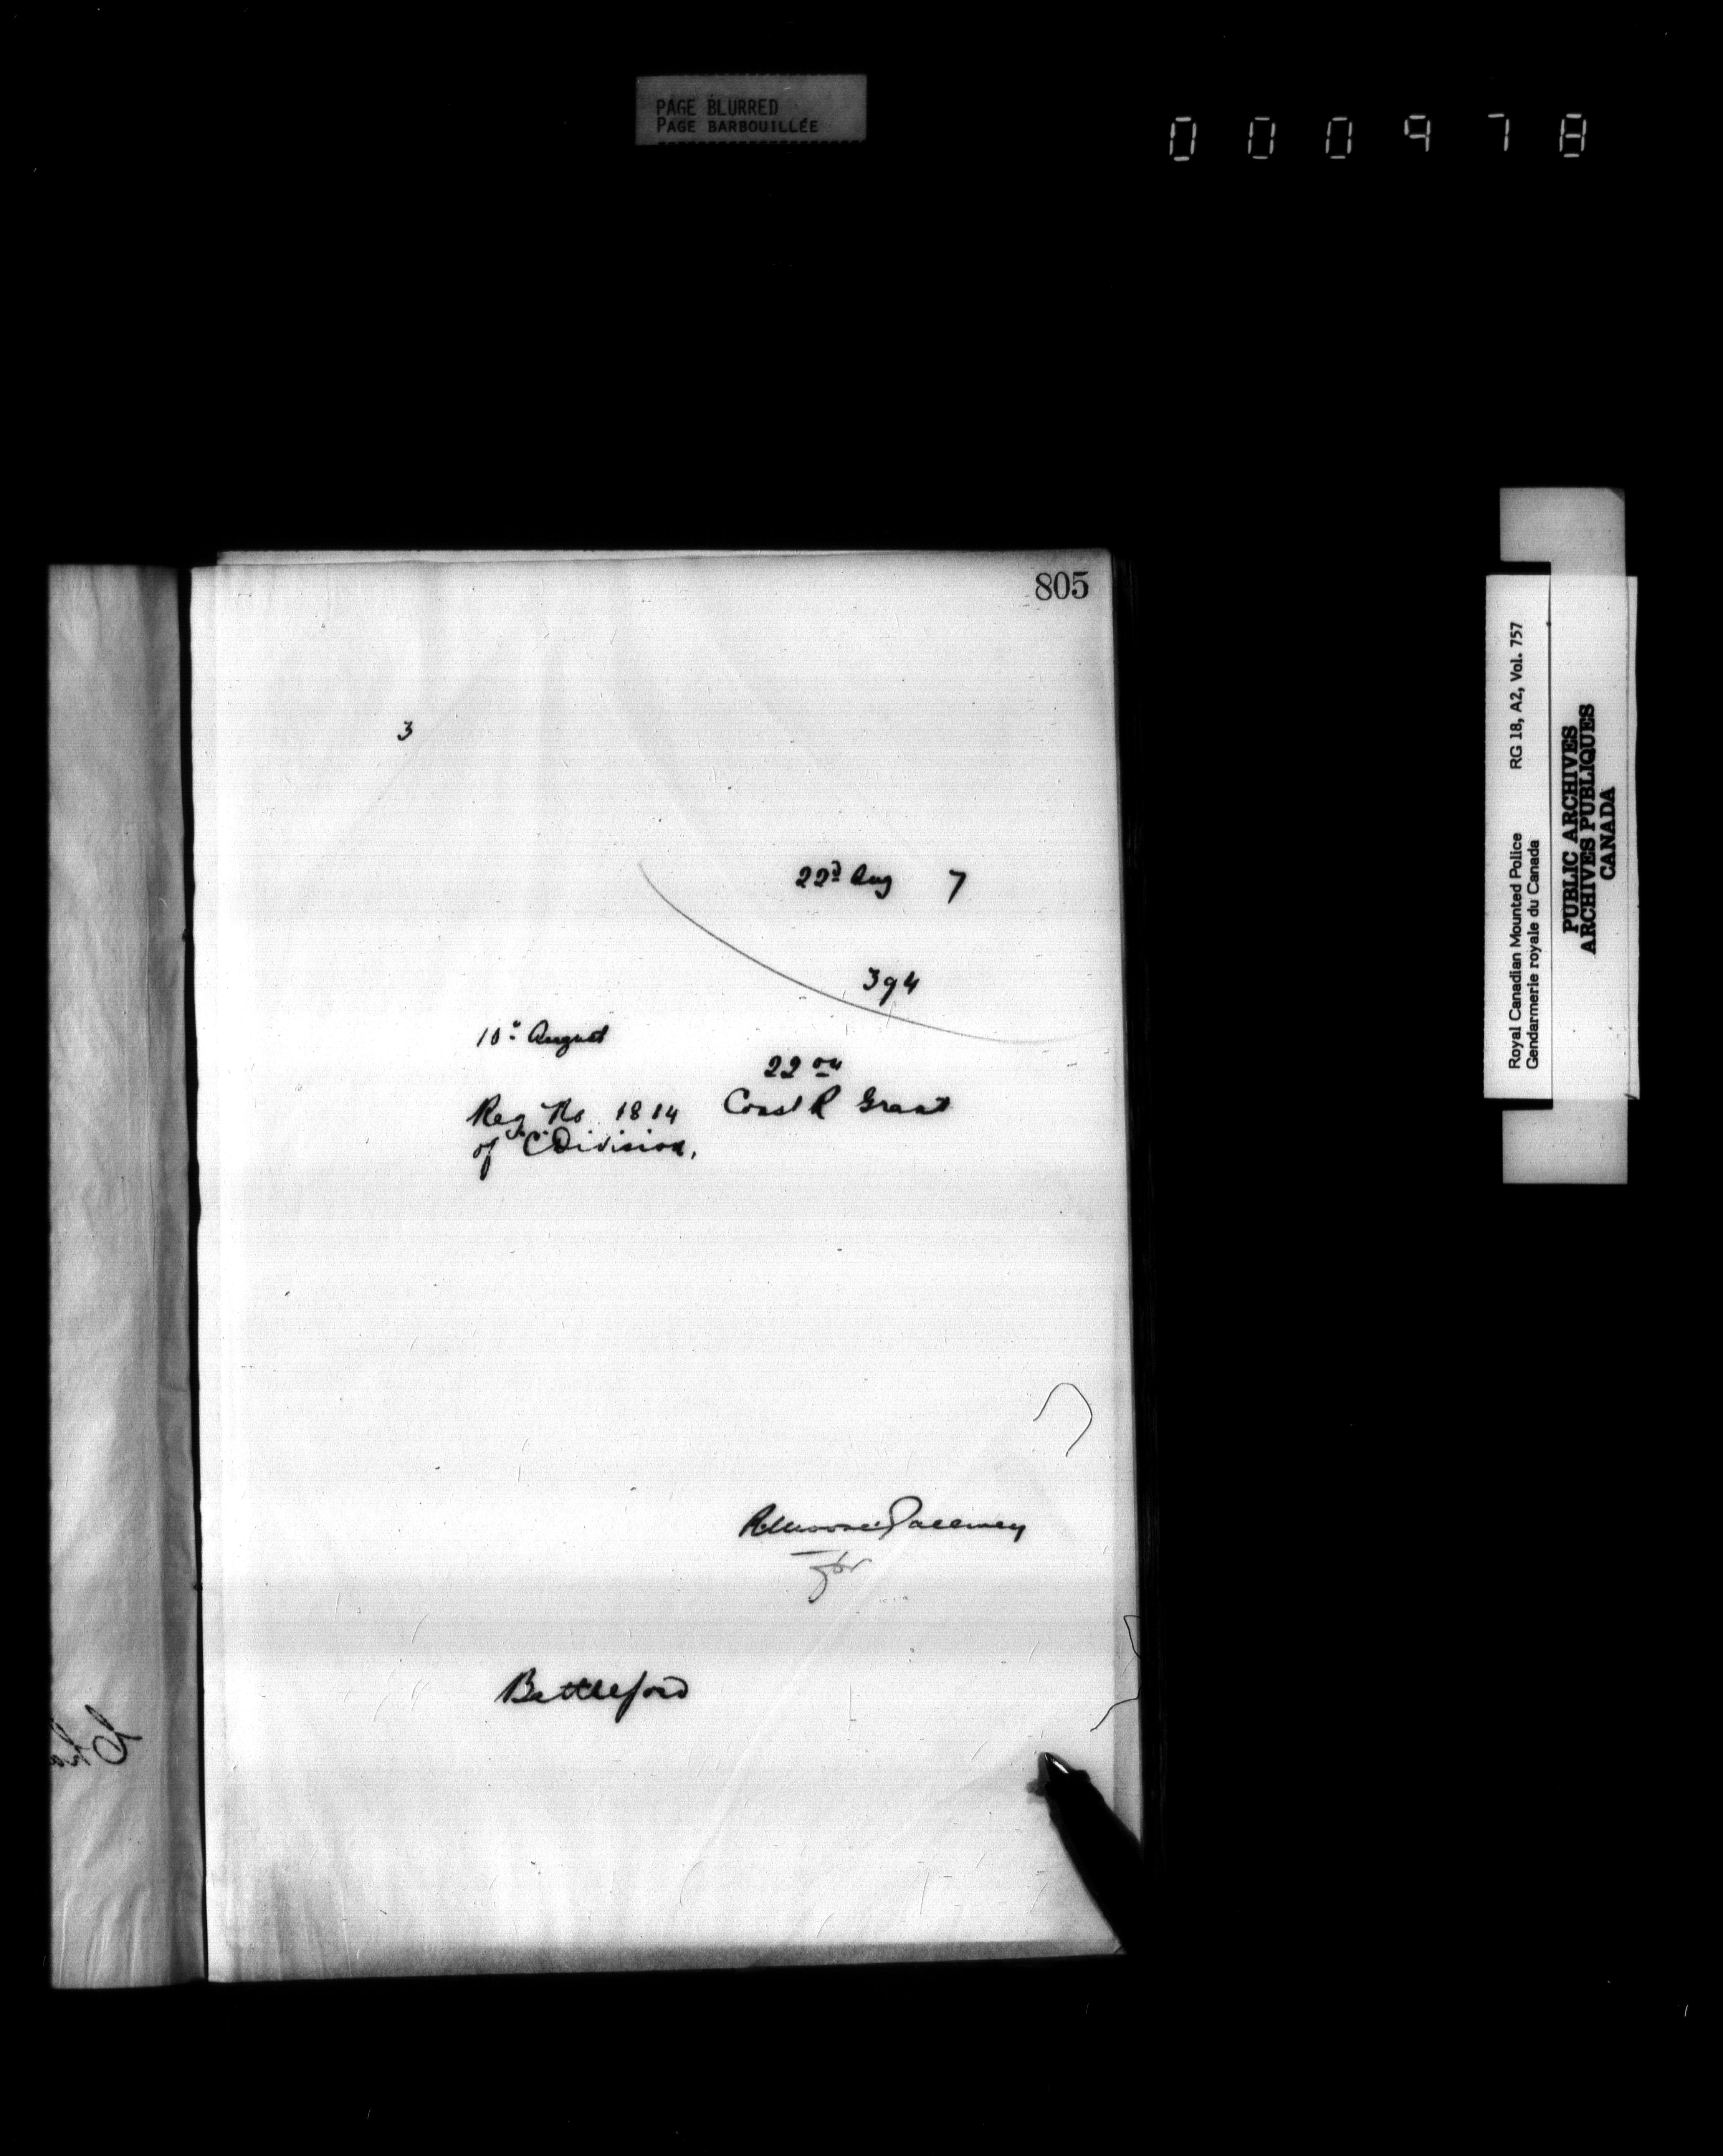 PAGE BLURRED
PAGE BARBOUILLÉE
000978
805
3
22d Aug 7
394
10th August
22nd
Reg No 1814 Const R Grant
of "C" Division.
for
Battleford
Royal Canadian Mounted Police RG 18, A2, Vol. 757
Gendarmerie royale du Canada
PUBLIC ARCHIVES
ARCHIVES PUBLIQUES
CANADA